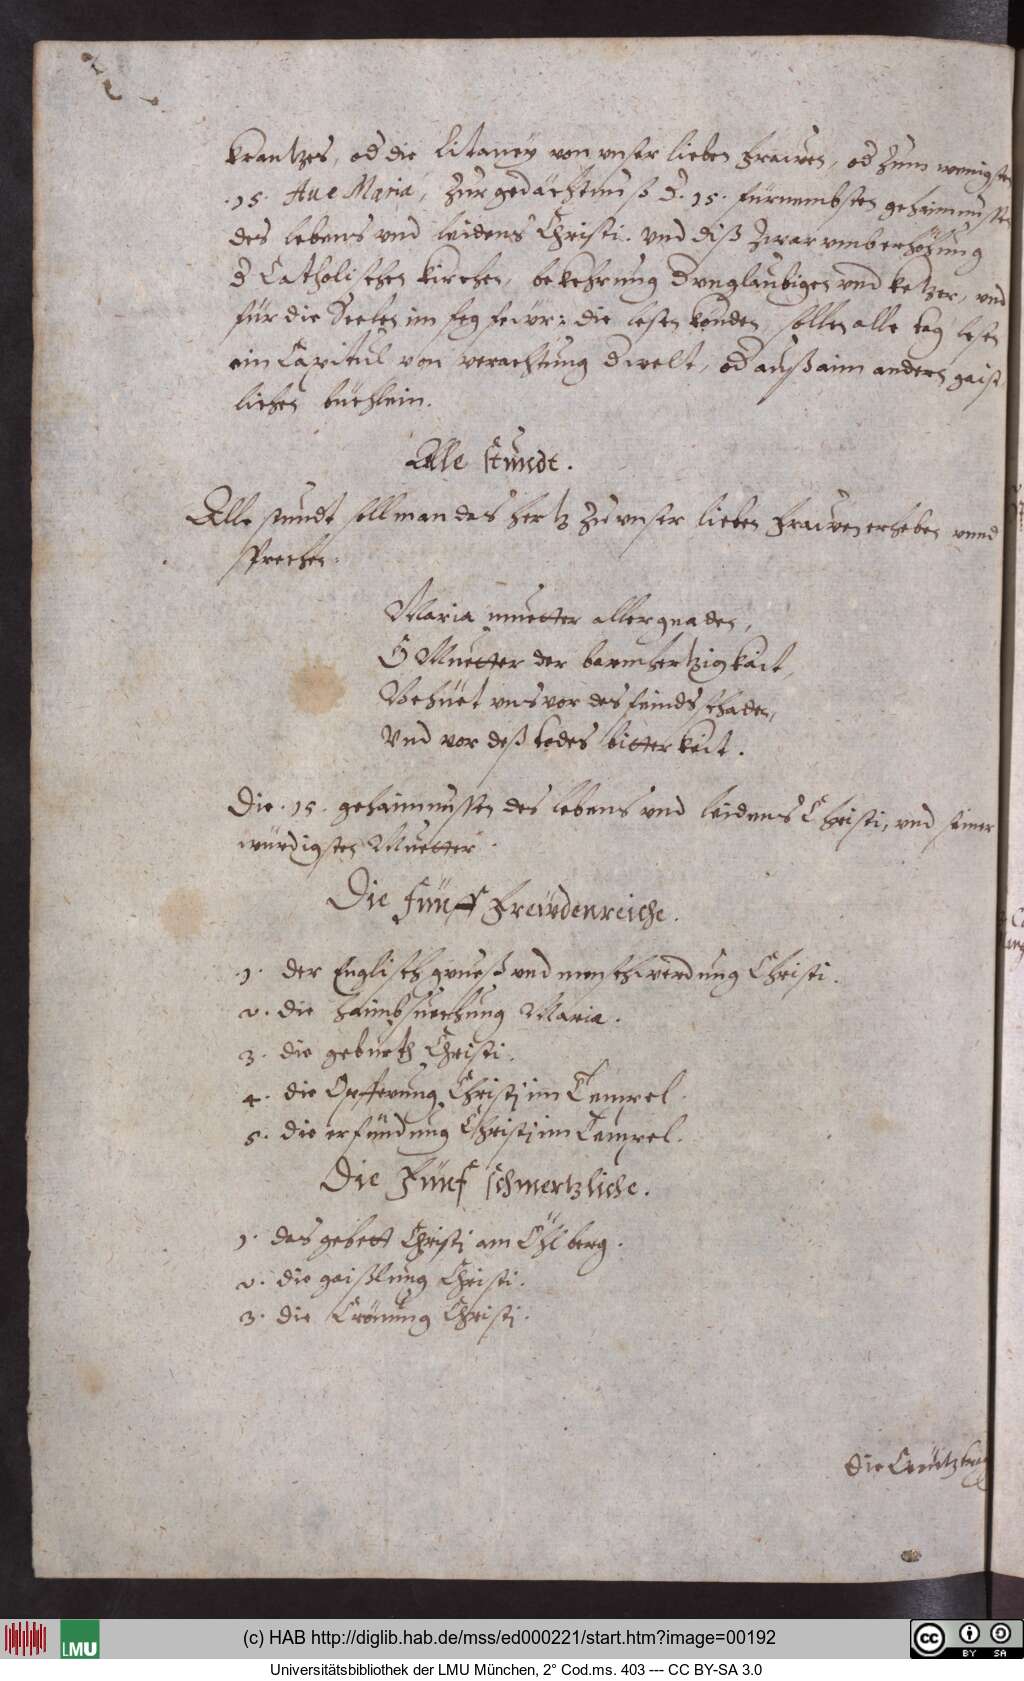 Krantzes, od die Litaney von vnser lieben Frawen, od zum wenigsten
.15. Aue Maria, zur gedächtnuß d. 15. fürnembsten gehaimnussen
des lebens vnd leidens Christi. vnd diß zwar vmb erhöhung
d Catholischen Kirchen, bekehrung d vnglaubigen vnd ketzer, vnd
für die Seelen im fegfewr: die lesen konden, sollen alle tag lesen
ein Capitul von verachtung d welt, od auß aim andern gaist
lichen büechlein.
Alle stundt.
Alle stundt soll man das hertz zu vnser lieben Frawen erheben vnnd
sprechen:
Maria muetter aller gnaden,
O Muetter der barmhertzigkait,
Behüet vns vor des feinds schaden,
Vnd vor deß todes bitterkait.
Die .15. gehaimnussen des lebens vnd leidens Christi, vnd seiner
würdigsten Muetter.
Die fünff Frewdenreiche.
1. der Englisch grueß vnd menschwerdung Christi.
2. die haimbsuechung Maria.
3. die geburth Christi.
4. die Opfferung Christi im Tempel.
5. die erfündung Christi im Tempel.
Die Fünf schmertzliche.
1. das gebett Christi am Öhlberg.
2. die gaißlung Christi.
3. die Crönung Christi.
die Creütztrag
(c) HAB http://diglib.hab.de/mss/ed000221/start.htm?image=00192
LMU
BY SA
Universitätsbibliothek der LMU München, 2° Cod.ms. 403 --- CC BY-SA 3.0